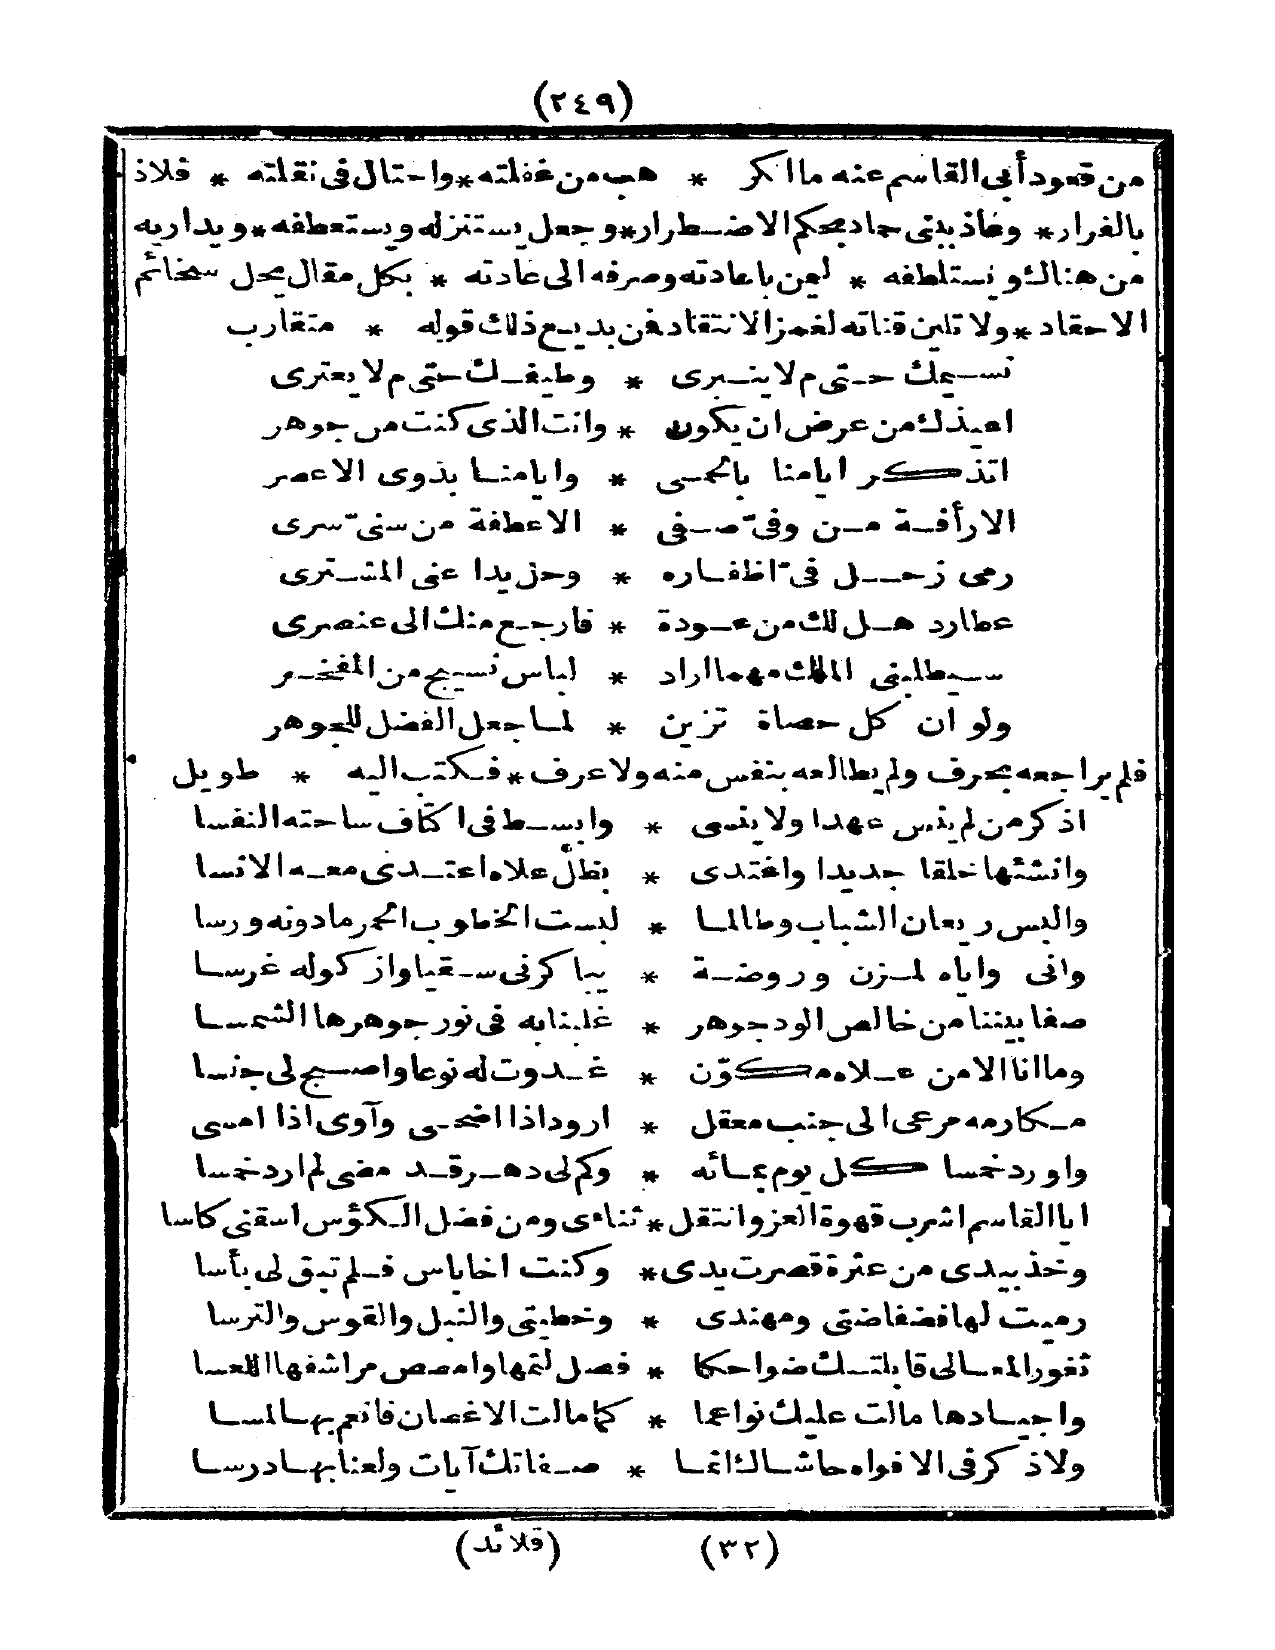 (٢٤٩)
من قعود أبى القاسم عنه ما انكر * هب من غفلته * واحتال فى نقلته * فلاذ
بالفرار * وجعل يستنزله ويستعطفه * ويداريه
من هنالك ويستلطفه * باعادته وصرفه الى عادته * بكل مقال يحل سخائم
الاحقاد * ولا تلين قناته لغمز الانتقاد فمن بديع ذلك قوله * متقارب
نسيمك حتى م لا ينبرى * وطيفك حتى م لا يعترى
اعيذك من عرض ان يكون * وانت الذى كنت من جوهر
اتذكر ايامنا بالحمى * وايامنا بذوى الاعصر
الا رأفة من وفىّ صفى * الا عطفة من سنىّ سرى
رمى زحل فىّ اظفاره * وحز يدا عنى المشترى
عطارد هل لك من عودة * فارجع منك الى عنصرى
سيطلبنى الملك مهما اراد * لباس نسيج من المفخر
ولو ان كل حصاة تزين * لما جعل الفضل للجوهر
فلم يراجعه بحرف ولم يطالعه بنفس منه ولا عرف * فكتب اليه * طويل
اذكر من لم ينس عهدا ولا ينسى * وابسط فى اكناف ساحته النفسا
وانشئها خلقا جديدا واغتدى * بظل علاه اعتدى معه الانسا
والبس ريعان الشباب وطالما * لبست الخطوب الحمر مادونه ورسا
وانى واياه لمزن وروضة * يباكرنى سقيا وازكو له غرسا
صفا بيننا من خالص الود جوهر * غلبنا به فى نور جوهرها الشمسا
وما انا الا من علاه مكوّن * غدوت له نوعا واصبح لى جنسا
مكارمه مرعى الى جنب معقل * ارود اذا اضحى وآوى اذا امسى
واورد خمسا كل يوم بمائه * وكم لى دهر قد مضى لم ارد خمسا
ابا القاسم اشرب قهوة العز وانتقل * ثناءى ومن فضل الكؤس اسقنى كاسا
وخذ بيدى من عثرة قصرت يدى * وكنت اخا باس فلم تبق لى بأسا
رميت لها فضفاضتى ومهندى * وخطيتى والنبل والقوس والترسا
ثغور المعالى قابلتك ضواحكا * فصل لثمها وامصص مراشفها اللعسا
واجيادها مالت عليك نواعما * كما مالت الاغصان فانعم بها لمسا
ولا ذكر فى الافواه حاشاك انما * صفاتك آيات ولعنا بها درسا
(٣٢) (قلائد)